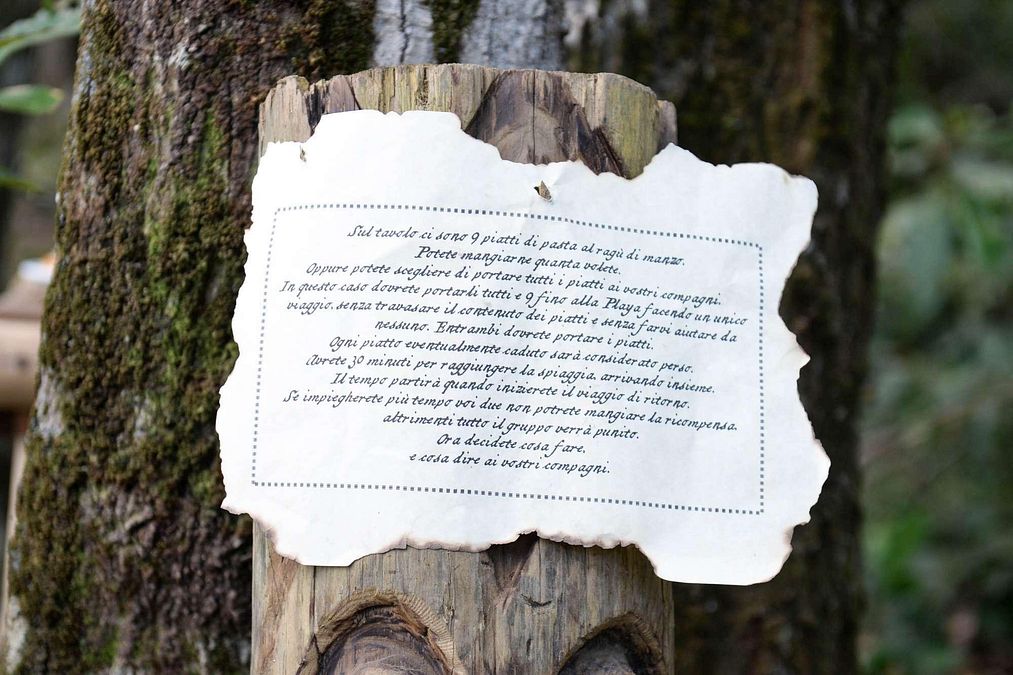 Sul tavolo ci sono 9 piatti di pasta al ragù di manzo.
Potete mangiarne quanta volete.
Oppure potete scegliere di portare tutti i piatti ai vostri compagni.
In questo caso dovrete portarli tutti e 9 fino alla Playa facendo un unico
viaggio, senza travasare il contenuto dei piatti e senza farvi aiutare da
nessuno. Entrambi dovrete portare i piatti.
Ogni piatto eventualmente caduto sarà considerato perso.
Avrete 30 minuti per raggiungere la spiaggia, arrivando insieme.
Il tempo partirà quando inizierete il viaggio di ritorno.
Se impiegherete più tempo voi due non potrete mangiare la ricompensa,
altrimenti tutto il gruppo verrà punito.
Ora decidete cosa fare,
e cosa dire ai vostri compagni.